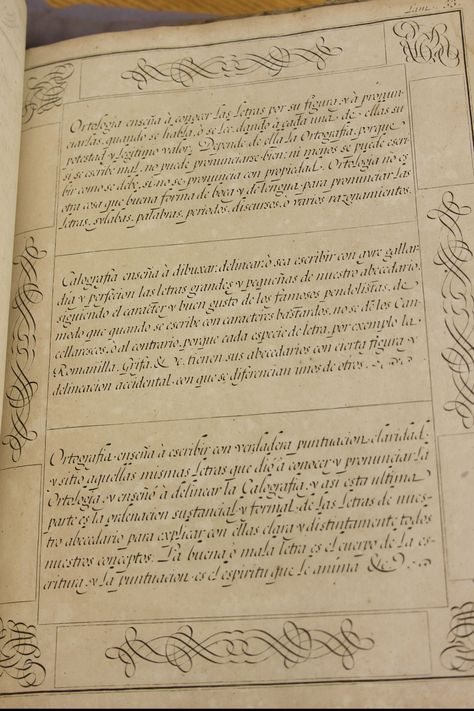 Lam. 33.
Ortologia enseña à conocer las letras por su figura, y à pronun-
ciarlas, quando se habla, ò se lee, dando à cada una de ellas su
potestad y legitimo valor. Depende de ella la Ortografia, porque
si se escribe mal, no puede pronunciarse bien; ni menos se puede escri-
bir como se debe, si no se pronuncia con propiedad. Ortologia no es
otra cosa que buena forma de boca y de lengua para pronunciar las
letras, sylabas, palabras, periodos, discursos, ò varios razonamientos.
Calografia enseña à dibuxar, delinear, ò sea escribir con ayre gallar-
dia y perfecion las letras grandes y pequeñas de nuestro abecedario,
siguiendo el caracter y buen gusto de los famosos pendolistas, de
modo que quando se escribe con caracteres bastardos, no se dè los Can-
cellarescos, ò al contrario, porque cada especie de letra, por exemplo la
Romanilla, Grifa, & c. tienen sus abecedarios con cierta figura y
delineacion accidental, con que se diferencian ùnos de otros.
Ortografia enseña à escribir con verdadera puntuacion, claridad,
y sitio aquellas mismas letras que diò à conocer y pronunciar la
Ortologia, y enseñò à delinear la Calografia, y asi esta ultima
parte es la ordenacion sustancial y formal de las letras de nues-
tro abecedario para explicar con ellas clara y distintamente todos
nuestros conceptos. La buena ò mala letra es el cuerpo de la es-
critura, y la puntuacion es el espiritu que le anima &c.